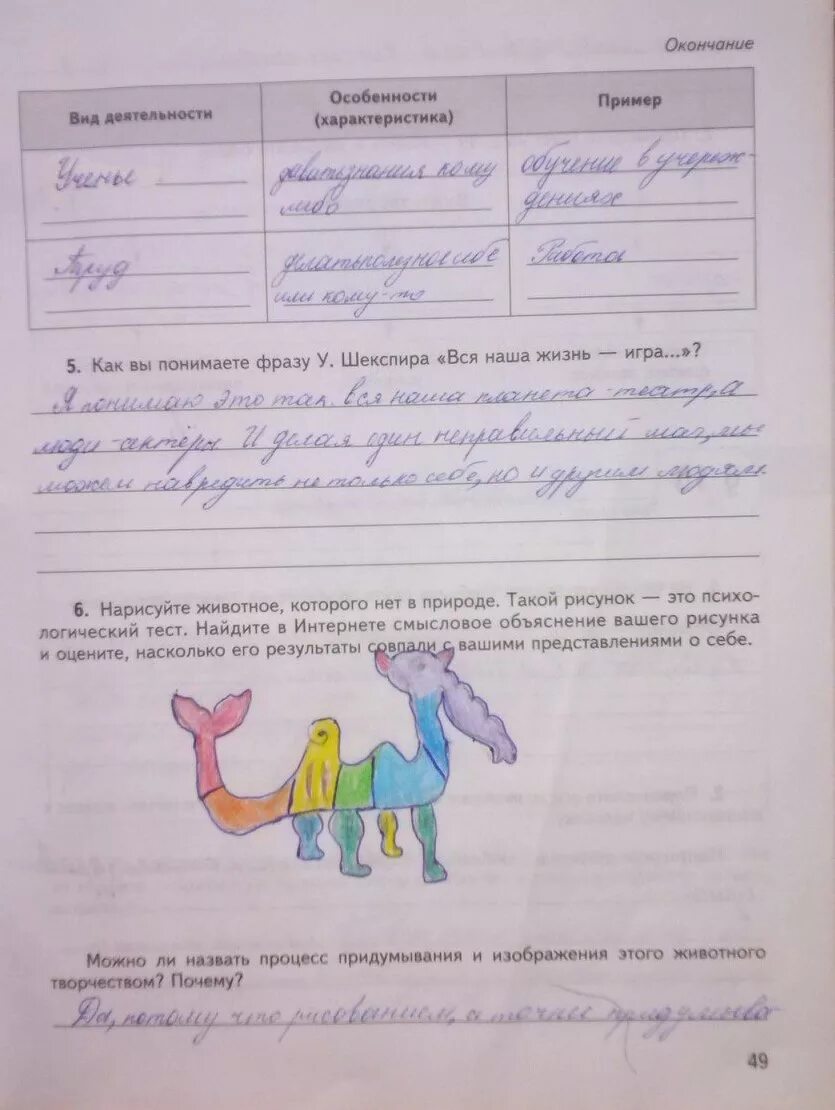 Окончание
Вид деятельности
Особенности
(характеристика)
Пример
Ученье
даватьзнания кому
либо
обучение в учереж-
дениях
Труд
делатьполезное себе
или кому-то
Работа
5. Как вы понимаете фразу У. Шекспира «Вся наша жизнь — игра...»?
Я понимаю это так. вся наша планета - театр, а
люди - актёры. И делая один неправильный шаг, мы
можем навредить не только себе, но и другим людям.
6. Нарисуйте животное, которого нет в природе. Такой рисунок — это психо-
логический тест. Найдите в Интернете смысловое объяснение вашего рисунка
и оцените, насколько его результаты совпали с вашими представлениями о себе.
Можно ли назвать процесс придумывания и изображения этого животного
творчеством? Почему?
Да, потому что рисованием, а точнее придумыва
49